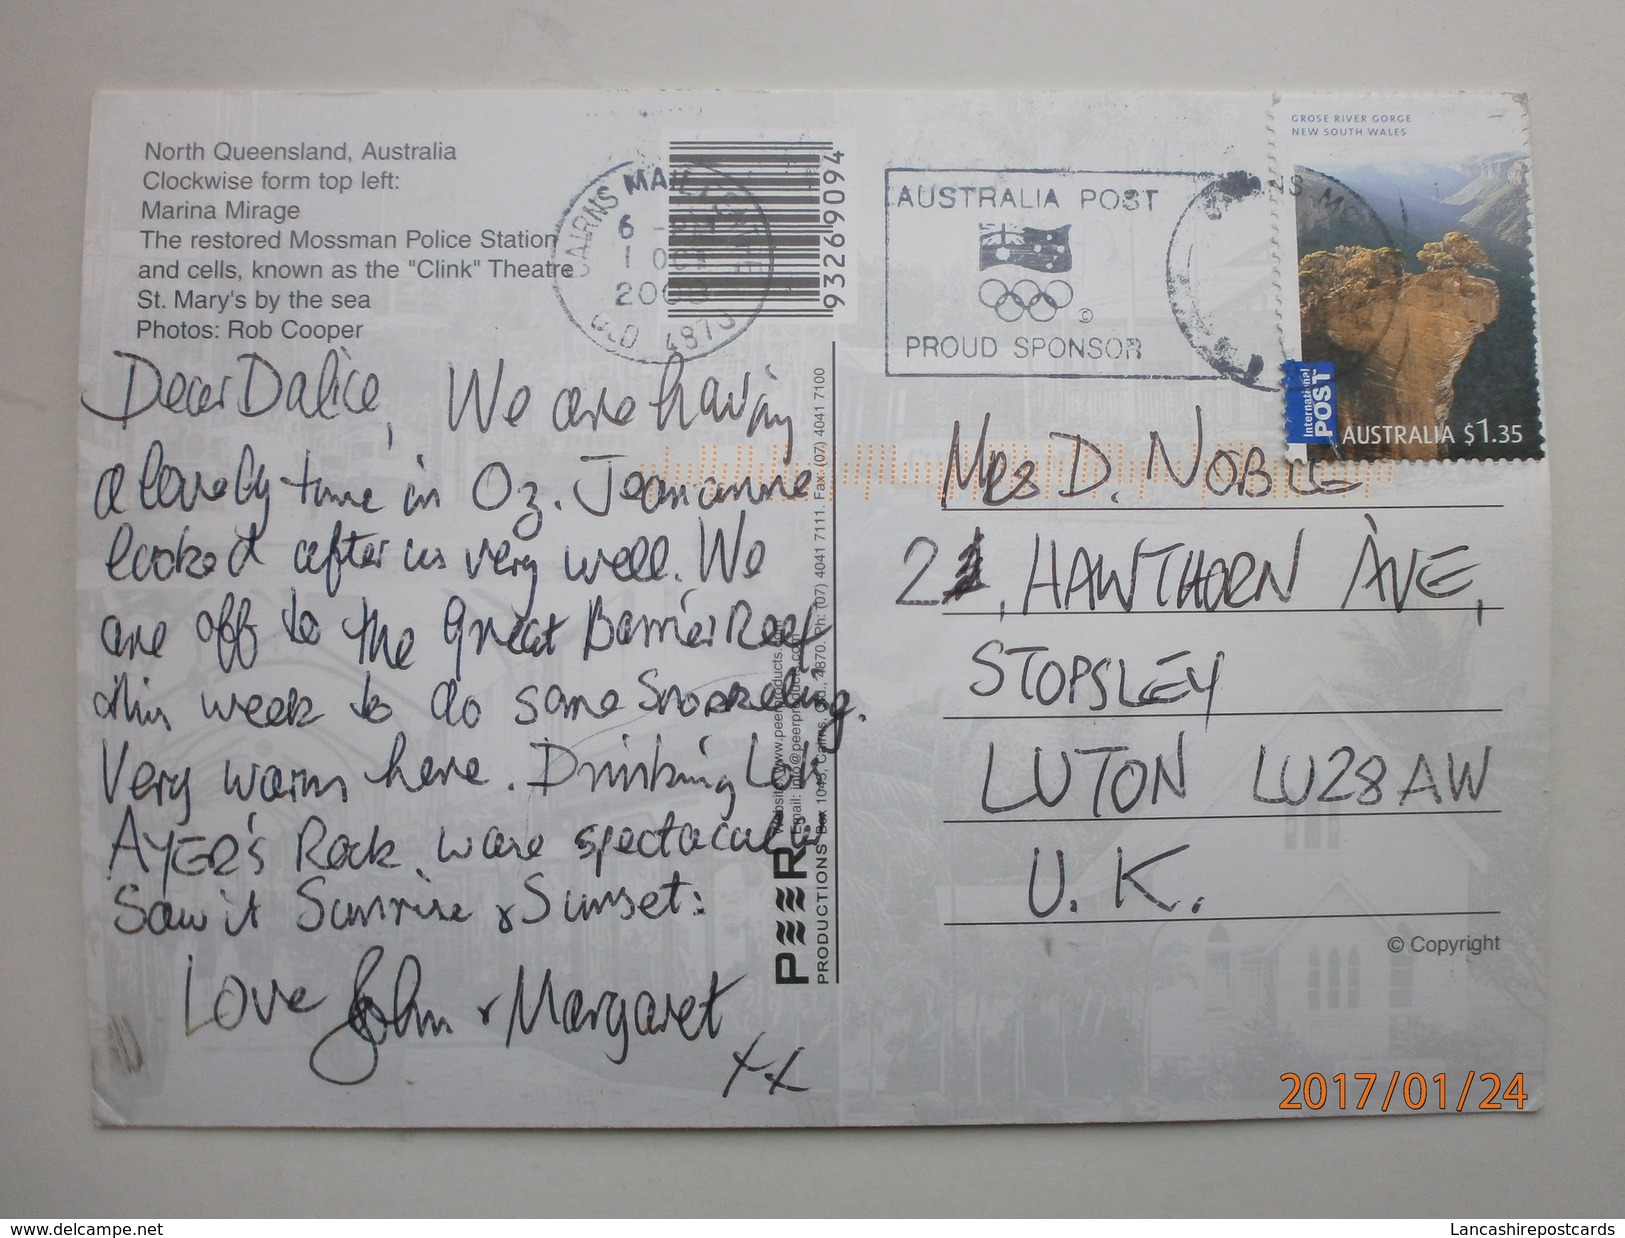 North Queensland, Australia
Clockwise form top left:
Marina Mirage
The restored Mossman Police Station
and cells, known as the "Clink" Theatre
St. Mary's by the sea
Photos: Rob Cooper
Dear Dalice, We are having
a lovely time in Oz. Jeananne
looked after us very well. We
are off to the Great Barrier Reef
this week to do some Snorkeling.
Very warm here. Drinking Lots
AYER'S Rock were spectacular
Saw it Sunrise & Sunset:
Love John & Margaret
xx
CAIRNS MAIL CENTRE
6 - PM
1 OCT
QLD 4870
93269094
AUSTRALIA POST
©
PROUD SPONSOR
GROSE RIVER GORGE
NEW SOUTH WALES
International
POST
AUSTRALIA $1.35
MRS D. NOBLE
2, HAWTHORN AVE,
STOPSLEY
LUTON LU28AW
U.K.
© Copyright
PEER
PRODUCTIONS Box 1045, Cairns, Qld., 4870. Ph: (07) 4041 7111. Fax: (07) 4041 7100
Email: info@peerproducts.com
Website: www.peerproducts.com
2017/01/24
www.delcampe.net
Lancashirepostcards